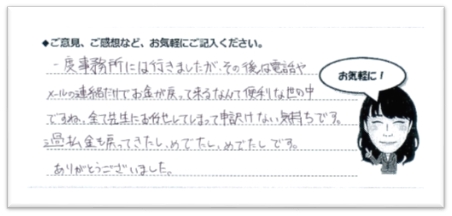 ◆ご意見、ご感想など、お気軽にご記入ください。
一度事務所には行きましたが、その後は電話や
メールの連絡だけでお金が戻って来るなんて便利な世の中
ですね、全て先生にお任せしてしまって申訳けない気持ちです。
過払金も戻ってきたし、めでたし、めでたしです。
ありがとうございました。
お気軽に!